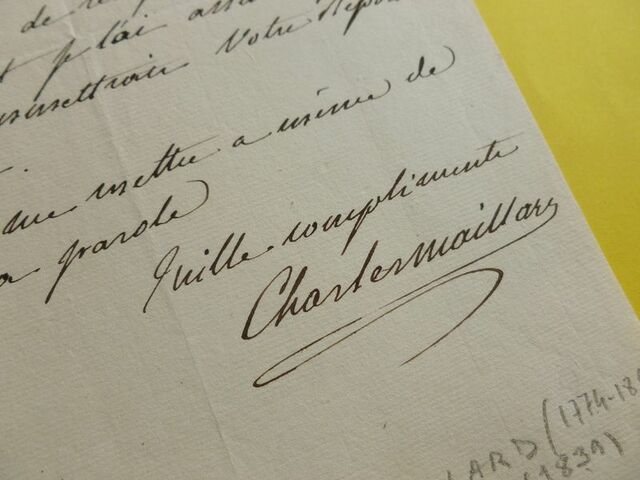 de
et je l'ai
transmettrai Votre Répon
me mettre a même de
a parole
Mille compliments
Charles Maillard
LARD (1774-18
(1839)